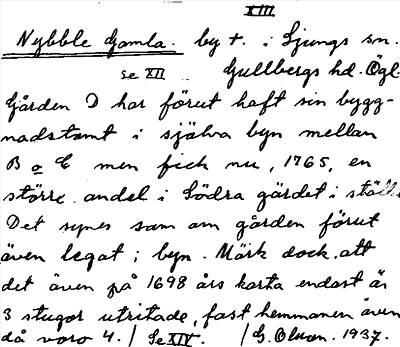 XIII
Nybble Gamla. by t. i Ljungs sn.
se XII .. Gullbergs hd. Ögl.
Gården D har förut haft sin bygg-
nadstomt i själva byn mellan
B o C men fick nu, 1765, en
större andel i Södra gärdet i ställe
Det synes som om gården förut
även legat i byn. Märk dock, att
det även på 1698 års karta endast är
3 stugor utritade, fast hemmanen även
då voro 4. / Se XIV. / G. Olson. 1937.